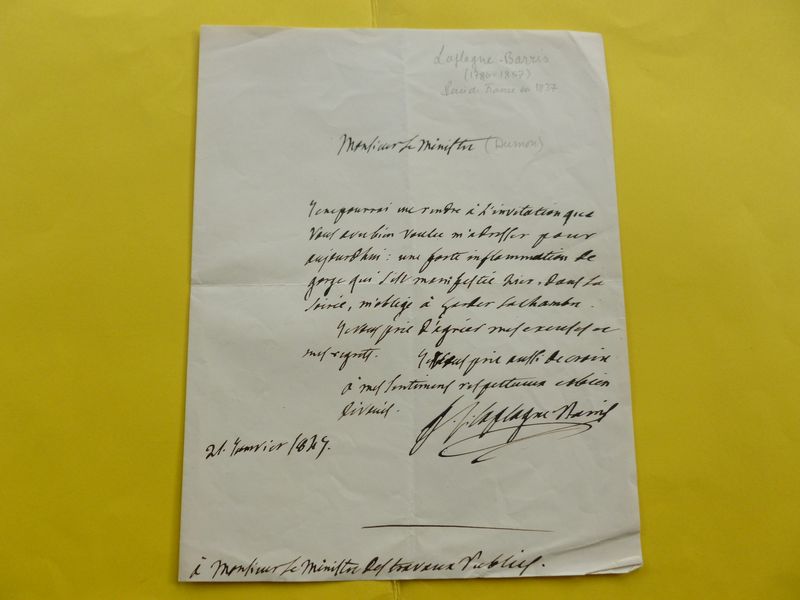 Laplagne-Barris
(1786-1857)
Pair de France en 1837
Monsieur Le Ministre (Dumon)
Je ne pourrai me rendre à L'invitation que
Vous avez bien voulu m'adresser pour
aujourdhui : une forte inflammation de
gorge qui s'est manifestée hier, dans La
Soirée, m'oblige à Garder La chambre.
Je vous prie d'agréer mes excuses et
mes regrets. Je vous prie aussi de croire
à mes Sentimens respectueux et bien
dévoués.
Laplagne Barris
21. Janvier 1847.
à Monsieur Le Ministre Des travaux Publics.